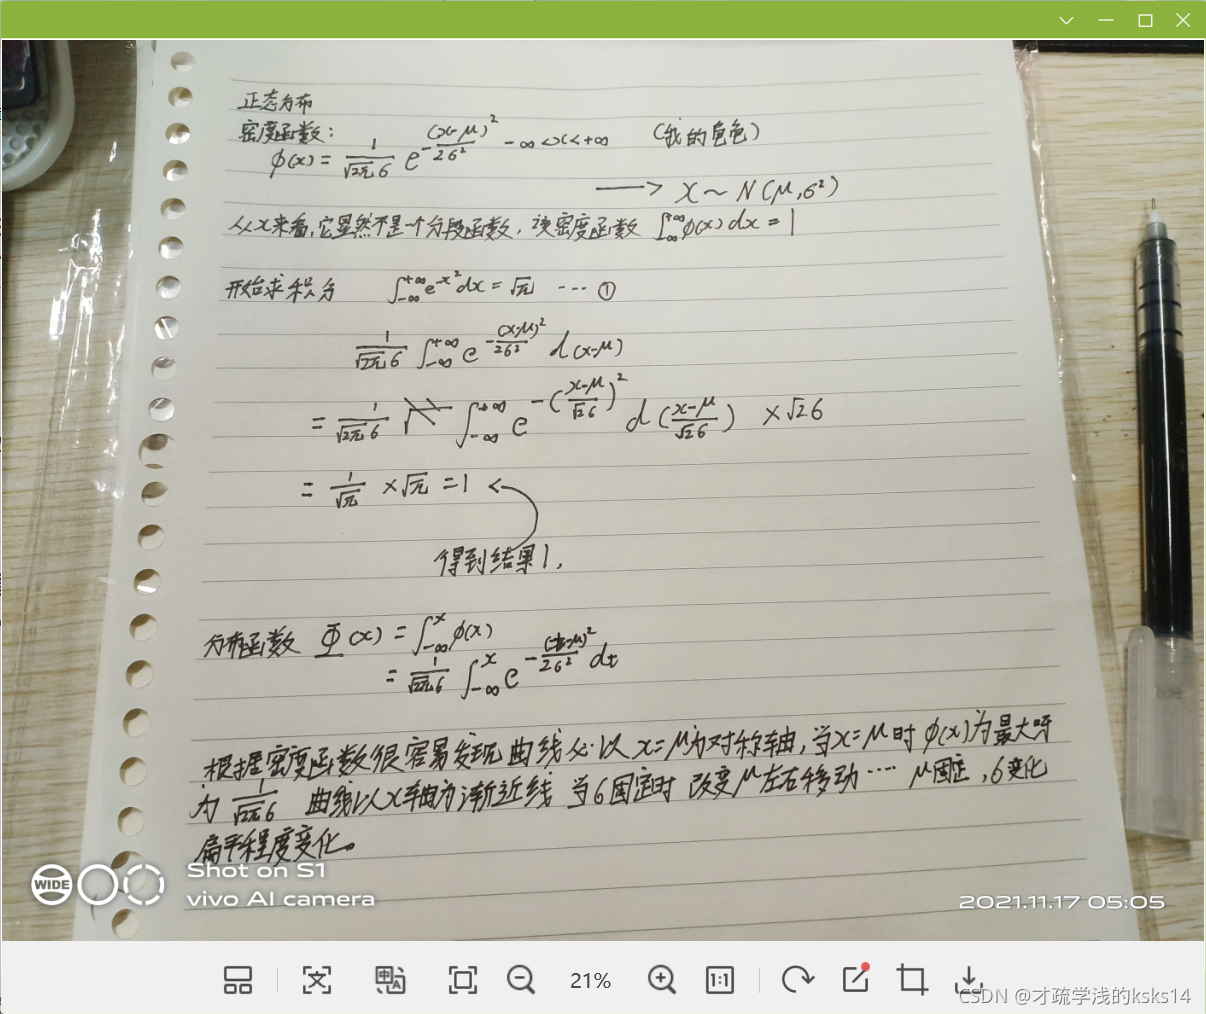 正态分布
密度函数:
φ(x) = 1/(√2π σ) e^(-(x-μ)²/2σ²) -∞<x<+∞ (我的角色)
⟶ X ~ N(μ,σ²)
从x来看,它显然不是一个分段函数,该密度函数 ∫_{-∞}^{+∞} φ(x) dx = 1
开始求积分 ∫_{-∞}^{+∞} e^(-x²) dx = √π ··· ①
1/(√2π σ) ∫_{-∞}^{+∞} e^(-(x-μ)²/2σ²) d(x-μ)
= 1/(√2π σ) ∫_{-∞}^{+∞} e^(-((x-μ)/(√2σ))²) d((x-μ)/(√2σ)) × √2σ
= 1/√π × √π = 1
得到结果1,
分布函数 Φ(x) = ∫_{-∞}^{x} φ(x)
= 1/(√2π σ) ∫_{-∞}^{x} e^(-(t-μ)²/2σ²) dt
根据密度函数很容易发现曲线 以x=μ为对称轴,当x=μ时φ(x)为最大呀
为 1/(√2π σ) 曲线以x轴为渐近线 当σ固定时 改变μ左右移动···· μ固定,σ变化
扁平程度变化。
WIDE
Shot on S1
vivo AI camera
2021.11.17 05:05
21%
1:1
CSDN @才疏学浅的ksks14